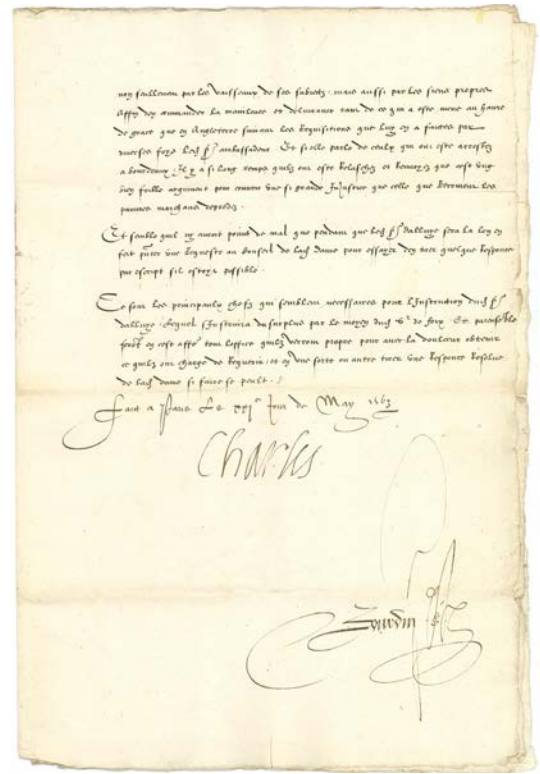 non seullement par les vaisseaux de ses subiectz, mais aussi par les siens propres
Affin den commander la mainlevee et delivrance tant de ce qui a este mene au havre
de grace que en Angleterre suivant les Requisitions que luy en a faictes par
diverses foys led. Sr ambassadeur. Et si elle parle de ceulx qui ont este arrestez
a bourdeaux Il y a si long temps quilz ont este Relaschez et que cest ung
bien foible argument pour une si grande Iniustice que celle que les
pauvres marchans depredez.
Et semble quil ny auroit point de mal que pendant que led. Sr dalluye sera la Ion en
feit une Requeste au conseil de lad. dame pour essayer den tirer quelque Response
par escript sil estoyt possible.
Ce sont les principaulx chefz qui semblent necessaires pour linstruction dud. Sr
dalluye, Lequel sinstruira du surplus par le moyen dud. Sr de foix. Et par ensemble
feront en cest affre tout loffice quilz verront propre pour avec la doulceur obtenir
ce quilz ont charge de Requerir, et en une sorte ou autre tirer une Response Resolue
de lad. dame si faire se peult.
Faict a Paris Le XXIe Jour de May 1563
Charles
Bourdin